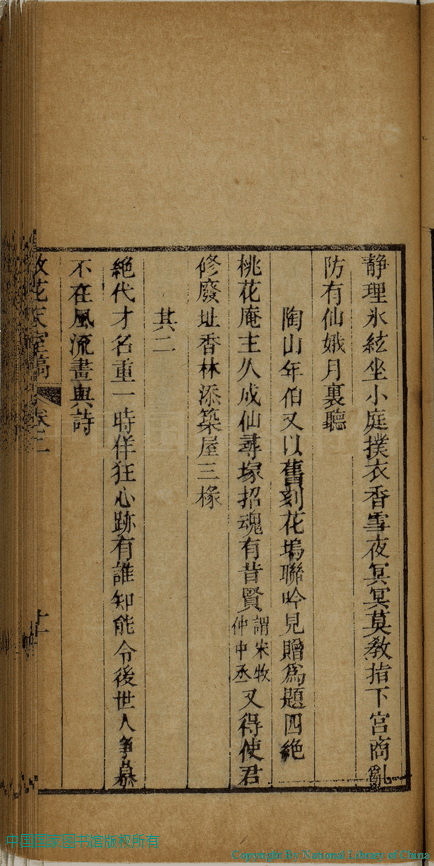 静理氷絃坐小庭撲衣香雪夜冥冥莫敎指下宮商亂
防有仙娥月裏聽
陶山年伯又以舊刻花塢聯吟見贈爲題四絶
桃花庵主久成仙尋塚招魂有昔賢謂宋牧仲中丞又得使君
修廢址香林添築屋三椽
其二
絶代才名重一時佯狂心跡有誰知能令後世人爭慕
不在風流畫與詩
花 稿 卷二
Copyright By National Library of China